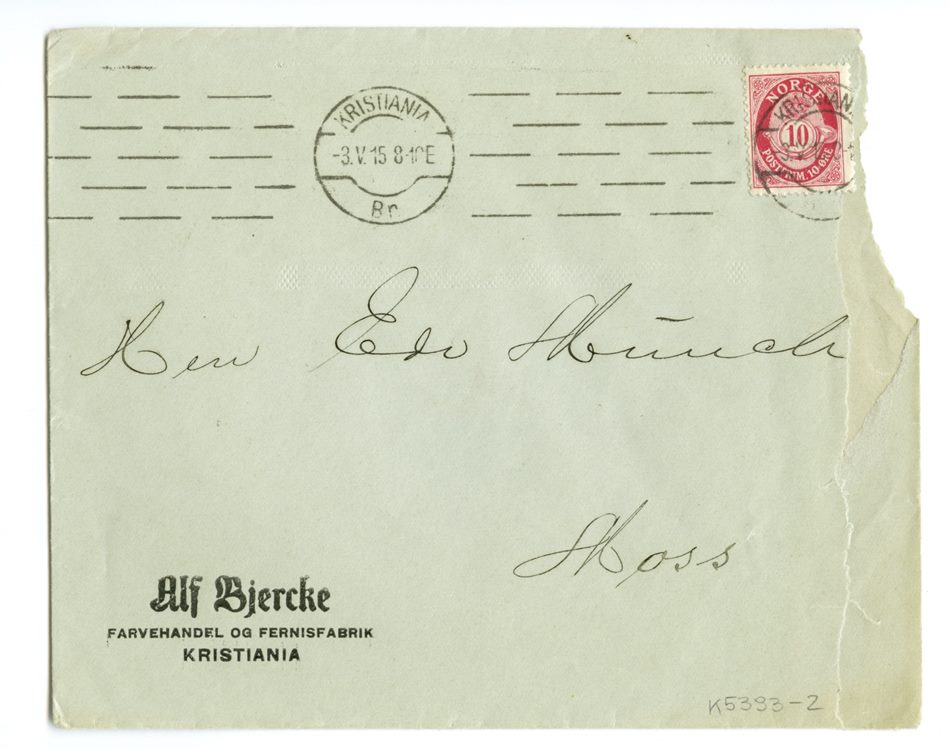 KRISTIANIA
-3.V.15 8-10E
Br
NORGE
10
POSTFRIM. 10 ØRE
KRISTIAN
Herr Edv Münch
Moss
Alf Bjercke
FARVEHANDEL OG FERNISFABRIK
KRISTIANIA
K5393-2